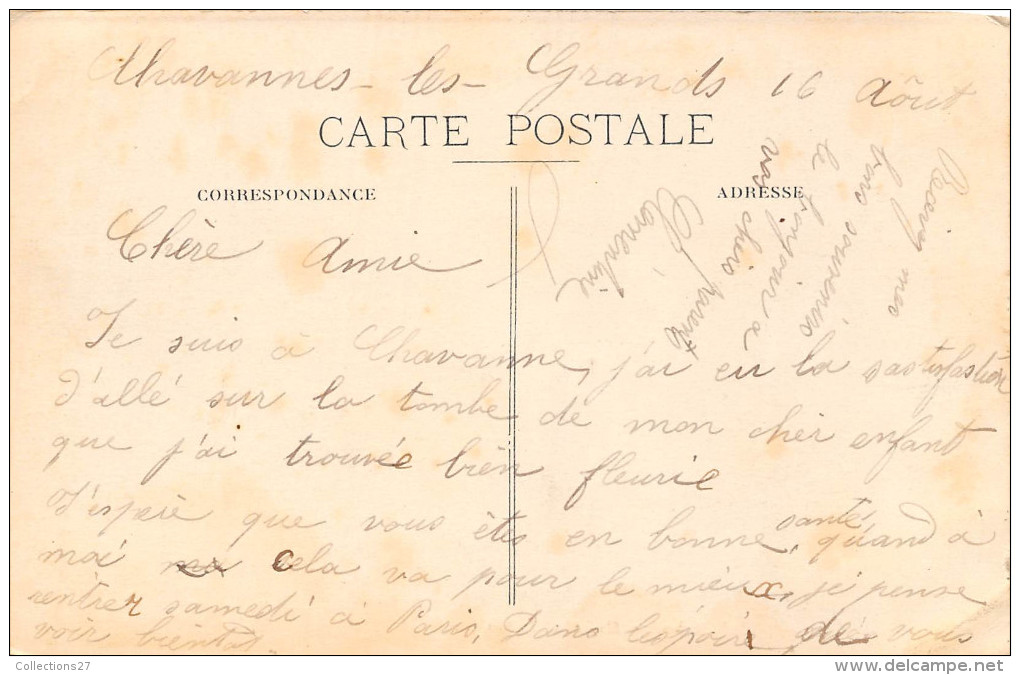 Chavannes-les-Grands 16 Aôut
CARTE POSTALE
CORRESPONDANCE
ADRESSE
Chère Amie
Je suis à Chavanne, j'ai eu la sastisfastion
d'allé sur la tombe de mon cher enfant
que j'ai trouvée bien fleurie
J'espère que vous êtes en bonne santé, quand à
moi cela va pour le mieux, je pense
rentrer samedi à Paris, Dans l'espoire de vous
voir bientôt.
Recevez mes
bons
le bonjour à
vos chers parents
Clementine
Collections27
delcampe.net